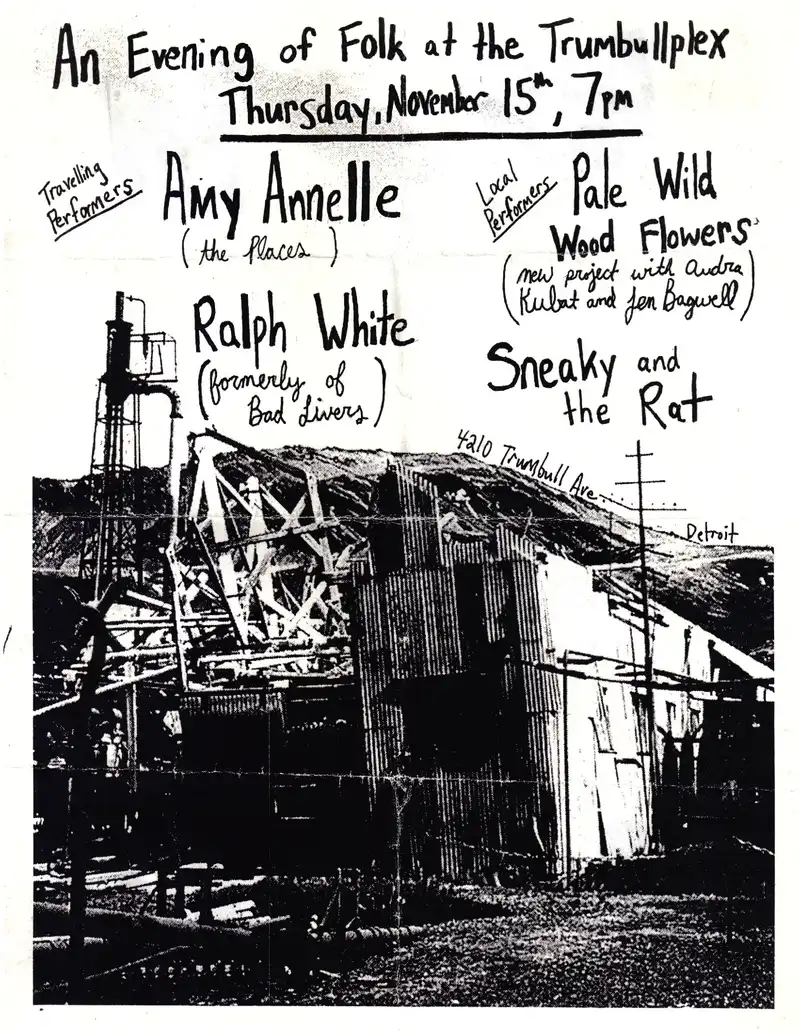 An Evening of Folk at the Trumbullplex
Thursday, November 15th, 7pm
Travelling
Performers
Amy Annelle
(the Places)
Ralph White
(formerly of
Bad Livers)
Local
Performers
Pale Wild
Wood Flowers
(new project with Audra
Kubat and Jen Bagwell)
Sneaky and
the Rat
4210 Trumbull Ave
Detroit